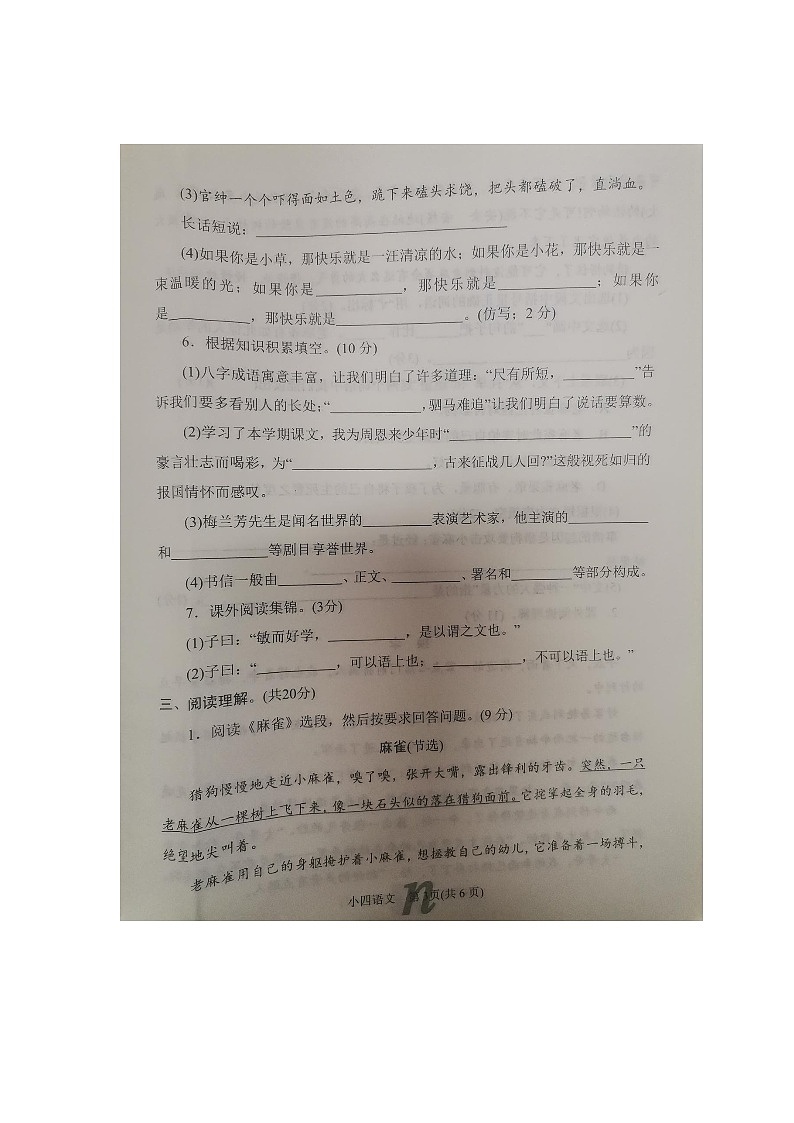 (3)官绅一个个吓得面如土色，跪下来磕头求饶，把头都磕破了，直淌血。
长话短说：
(4)如果你是小草，那快乐就是一汪清凉的水；如果你是小花，那快乐就是一
束温暖的光；如果你是__________，那快乐就是__________；如果你
是__________，那快乐就是__________。(仿写：2 分)
6．根据知识积累填空。(10 分)
(1)八字成语寓意丰富，让我们明白了许多道理：“尺有所短，__________”告
诉我们要多看别人的长处；“__________，驷马难追”让我们明白了说话要算数。
(2)学习了本学期课文，我为周恩来少年时“__________”的
豪言壮志而喝彩，为“__________，古来征战几人回?”这般视死如归的
报国情怀而感叹。
(3)梅兰芳先生是闻名世界的__________表演艺术家，他主演的__________
和__________等剧目享誉世界。
(4)书信一般由__________、正文、__________、署名和__________等部分构成。
7．课外阅读集锦。(3分)
(1)子曰：“敏而好学，__________，是以谓之文也。”
(2)子曰：“__________，可以语上也；__________，不可以语上也。”
三、阅读理解。(共20分)
1．阅读《麻雀》选段，然后按要求回答问题。(9 分)
麻雀(节选)
猎狗慢慢地走近小麻雀，嗅了嗅，张开大嘴，露出锋利的牙齿。突然，一只
老麻雀从一棵树上飞下来，像一块石头似的落在猎狗面前。它挓挲起全身的羽毛，
绝望地尖叫着。
老麻雀用自己的身躯掩护着小麻雀，想拯救自己的幼儿，它准备着一场搏斗，
小四语文 第3页(共 6 页)
n